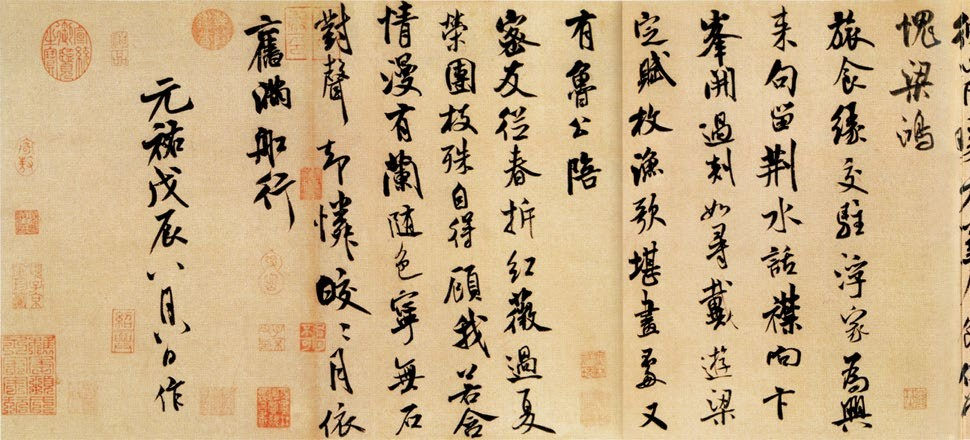 愧梁鴻
旅食緣交駐浮家為興
來句留荆水話襟向卞
峯開過剡如尋戴遊梁
定賦枚漁歌堪畫處又
有魯公陪
密友從春拆紅薇過夏
榮團枝殊自得顧我若含
情漫有蘭隨色寧無石
對聲却憐皎〻月依
舊滿船行
元祐戊辰八月八日作